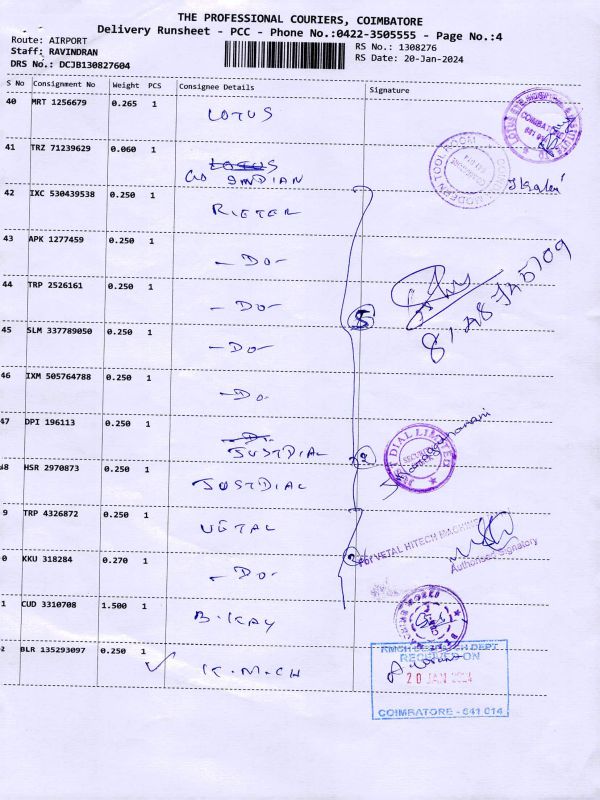 THE PROFESSIONAL COURIERS, COIMBATORE
Delivery Runsheet - PCC - Phone No.:0422-3505555 - Page No.:4
Route: AIRPORT
Staff: RAVINDRAN
DRS No.: DCJB130827604
RS No.: 1308276
RS Date: 20-Jan-2024
S No Consignment No Weight PCS Consignee Details Signature
40 MRT 1256679 0.265 1 LOTUS
41 TRZ 71239629 0.060 1
INDIAN
42 IXC 530439538 0.250 1 RIETER
43 APK 1277459 0.250 1 -DO-
44 TRP 2526161 0.250 1 -DO-
45 SLM 337789050 0.250 1 -DO-
46 IXM 505764788 0.250 1 -DO-
47 DPI 196113 0.250 1 JUSTDIAL
48 HSR 2970873 0.250 1 JUSTDIAL
9 TRP 4326872 0.250 1 VETAL
0 KKU 318284 0.270 1 -DO-
1 CUD 3310708 1.500 1 B.KAY
2 BLR 135293097 0.250 1 K.M.CH
5
2
2
JUST DIAL LIMITED
SECURITY
For VETAL HITECH MACHINE
Authorised Signatory
KMCH DESPATCH DEPT
RECEIVED ON
20 JAN 2024
COIMBATORE - 641 014